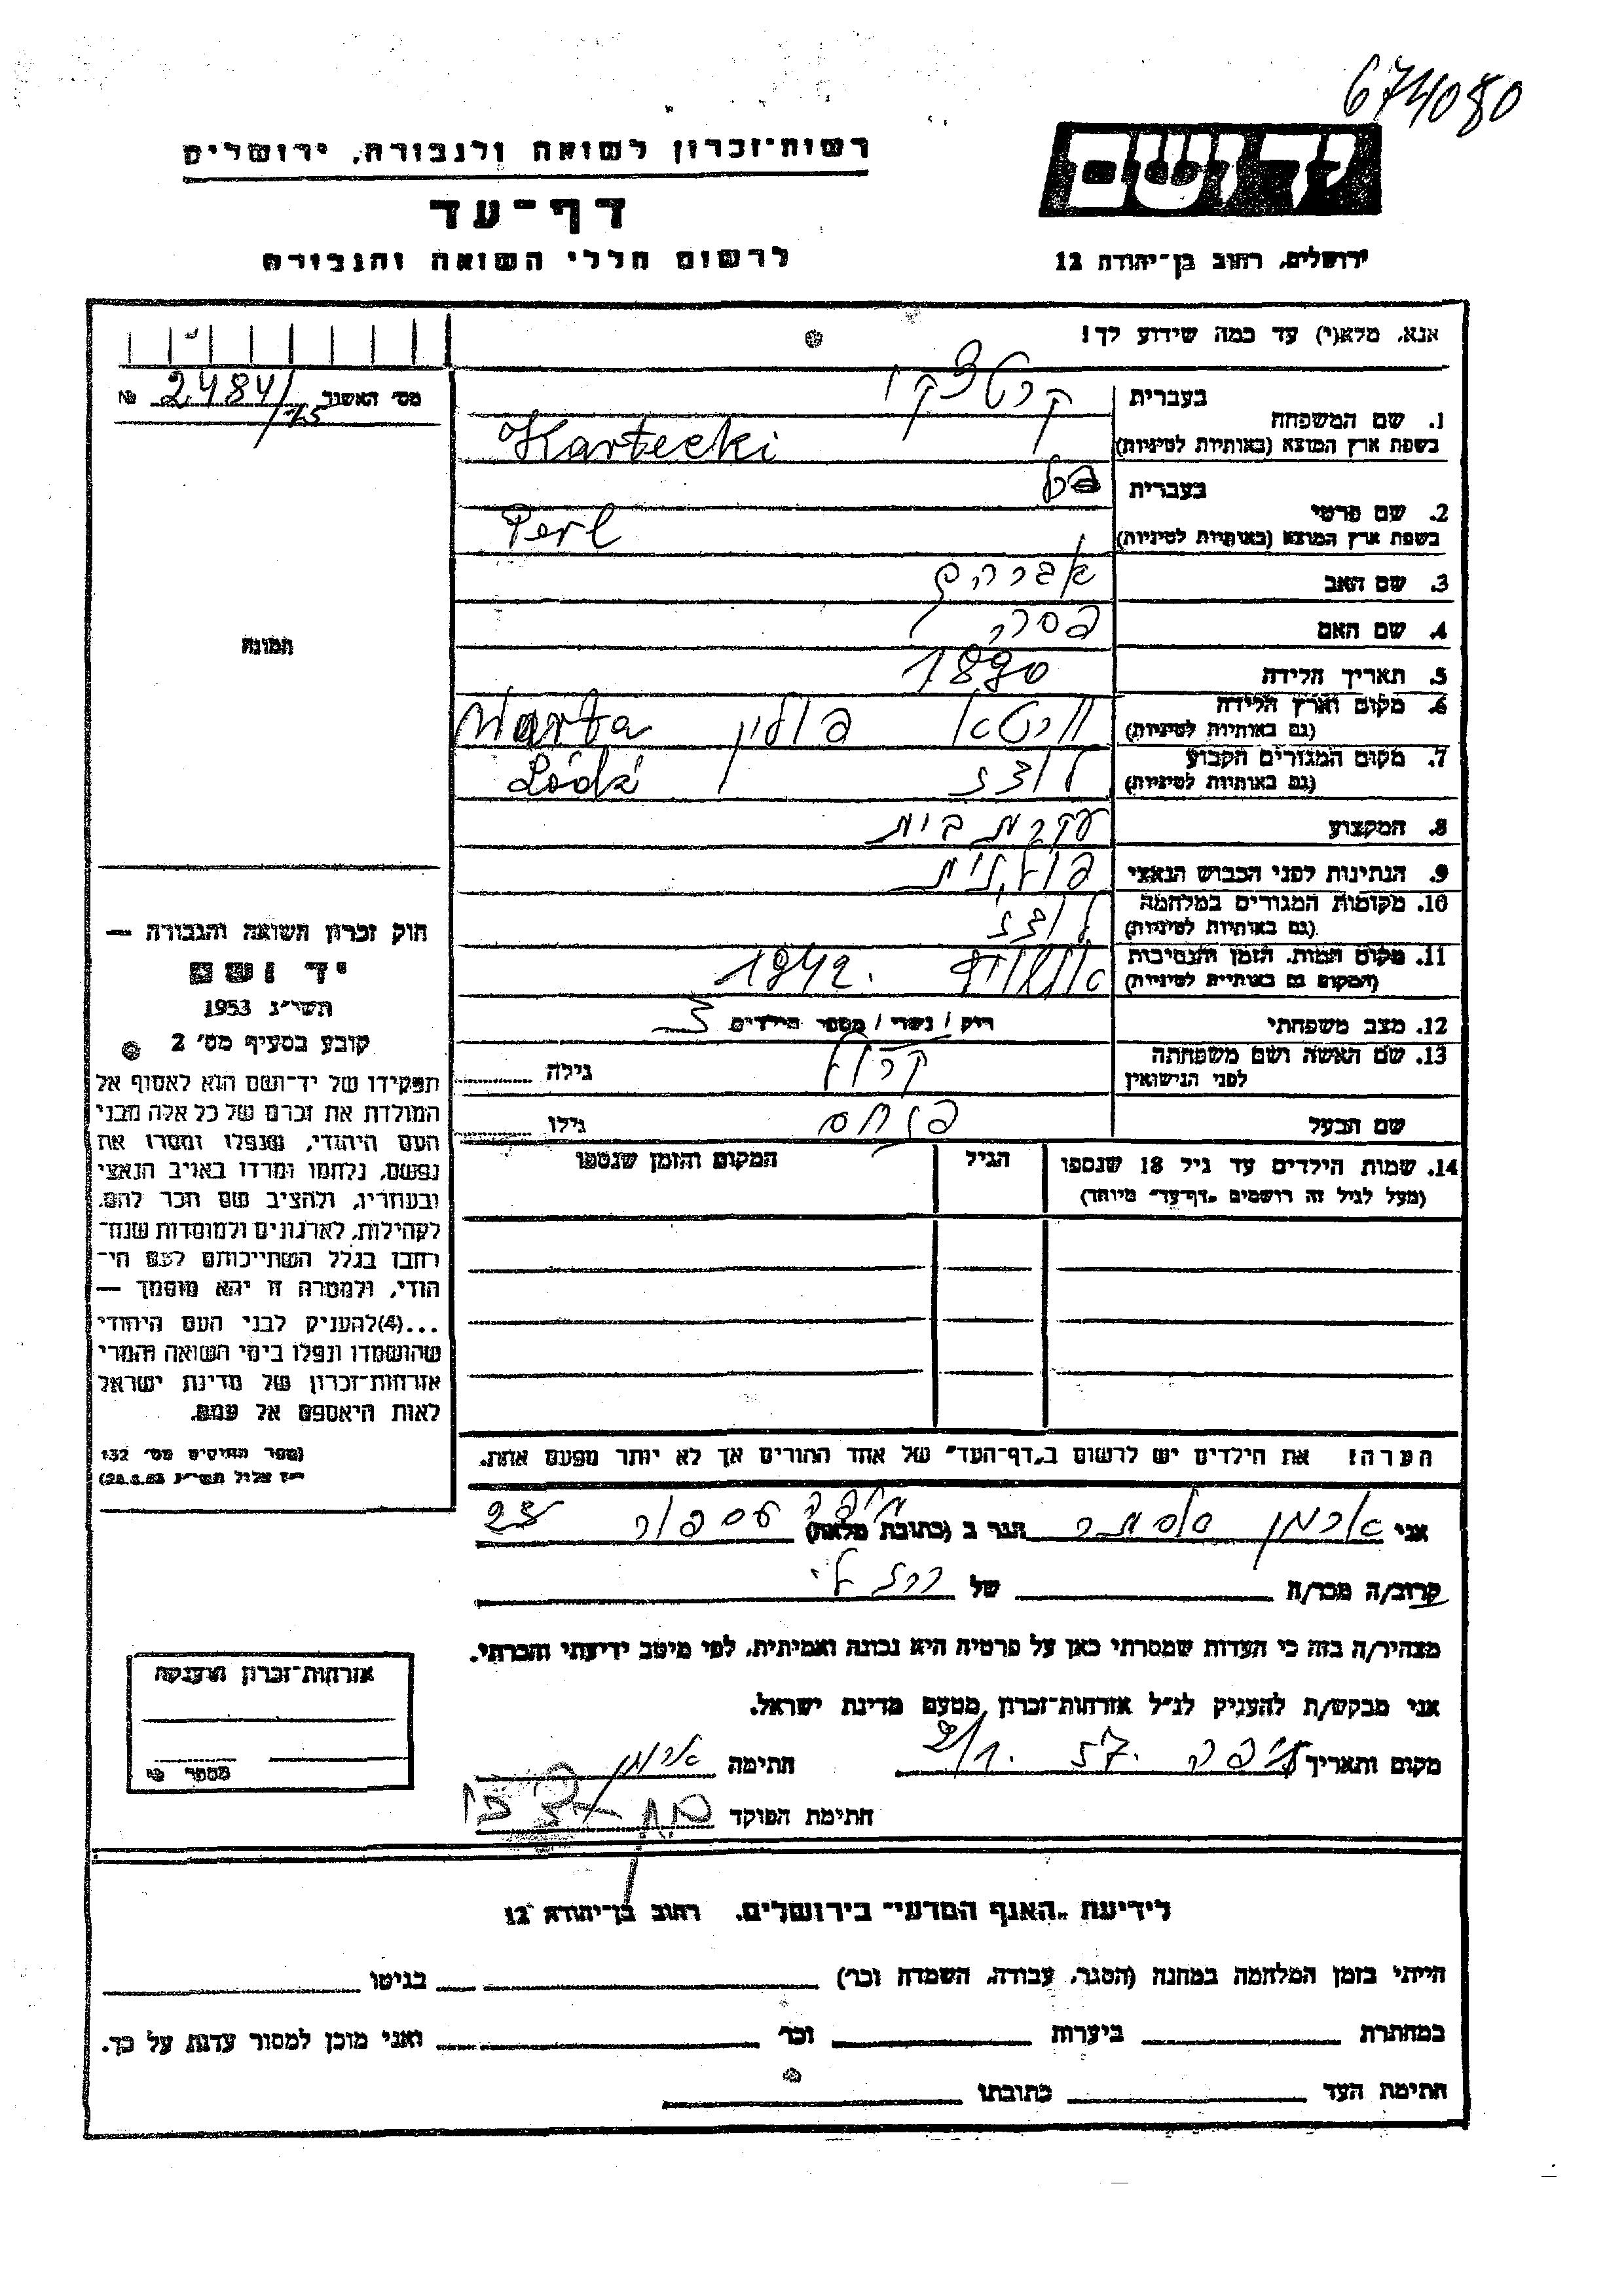 674080
יד ושם
ירושלים, רחוב בן־יהודה 12
רשות־זכרון לשואה ולגבורה, ירושלים
דף־עד
לרשום חללי השואה והגבורה
אנא, מלא(י) עד כמה שידוע לך!
מס׳ האשור 2484/15 №
1. שם המשפחה
בעברית קרטצקי
בשפת ארץ המוצא (באותיות לטיניות) Kartecki
2. שם פרטי
בעברית
בשפת ארץ המוצא (באותיות לטיניות) Perl
3. שם האב אברהם
4. שם האם
5. תאריך הלידה 1890
6. מקום וארץ הלידה
(גם באותיות לטיניות) ורטא פולין Warta
7. מקום המגורים הקבוע
(גם באותיות לטיניות) לודז Łódź
8. המקצוע עקרת בית
9. הנתינות לפני הכבוש הנאצי פולנית
10. מקומות המגורים במלחמה
(גם באותיות לטיניות) לודז
11. מקום המות, הזמן והנסיבות
(המקום גם באותיות לטיניות) 1942.
12. מצב משפחתי רוק / נשוי / מספר הילדים 3
13. שם האשה ושם משפחתה
לפני הנישואין גילה
שם הבעל פנחס גילו
14. שמות הילדים עד גיל 18 שנספו
(מעל לגיל זה רושמים „דף־עד״ מיוחד)
הגיל
המקום והזמן שנספו
הערה: את הילדים יש לרשום ב„דף־העד״ של אחד ההורים אך לא יותר מפעם אחת.
תמונה
חוק זכרון השואה והגבורה —
יד ושם
תשי״ג 1953
קובע בסעיף מס׳ 2
תפקידו של יד־ושם הוא לאסוף אל
המולדת את זכרם של כל אלה מבני
העם היהודי, שנפלו ומסרו את
נפשם, נלחמו ומרדו באויב הנאצי
ובעוזריו, ולהציב שם וזכר להם,
לקהילות, לארגונים ולמוסדות שנח־
רבו בגלל השתייכותם לעם הי־
הודי, ולמטרה זו יהא מוסמך —
...(4)להעניק לבני העם היהודי
שהושמדו ונפלו בימי השואה והמרי
אזרחות־זכרון של מדינת ישראל
לאות היאספם אל עמם.
(ספר החוקים מס׳ 132
י״ז אלול תשי״ג 28.8.53)
אני הגר ב (כתובת מלאה) חיפה 23
קרוב/ה מכר/ה של
מצהיר/ה בזה כי העדות שמסרתי כאן על פרטיה היא נכונה ואמיתית, לפי מיטב ידיעתי והכרתי.
אני מבקש/ת להעניק לנ״ל אזרחות־זכרון מטעם מדינת ישראל.
מקום ותאריך חיפה 57. חתימה
חתימת הפוקד
אזרחות־זכרון הוענקה
מספר
לידיעת „האגף המדעי״ בירושלים, רחוב בן־יהודה 12
הייתי בזמן המלחמה במחנה (הסגר, עבודה, השמדה וכו׳) בגיטו
במחתרת ביערות וכו׳ ואני מוכן למסור עדות על כך.
חתימת העד כתובתו